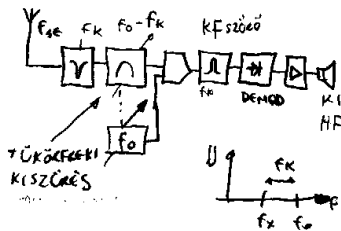 fK
f0-fK
KF SZŰRŐ
fK
DEMOD
KI
HF
f0
TÜKÖRFREKI
KISZŰRÉS
fK
fx
f